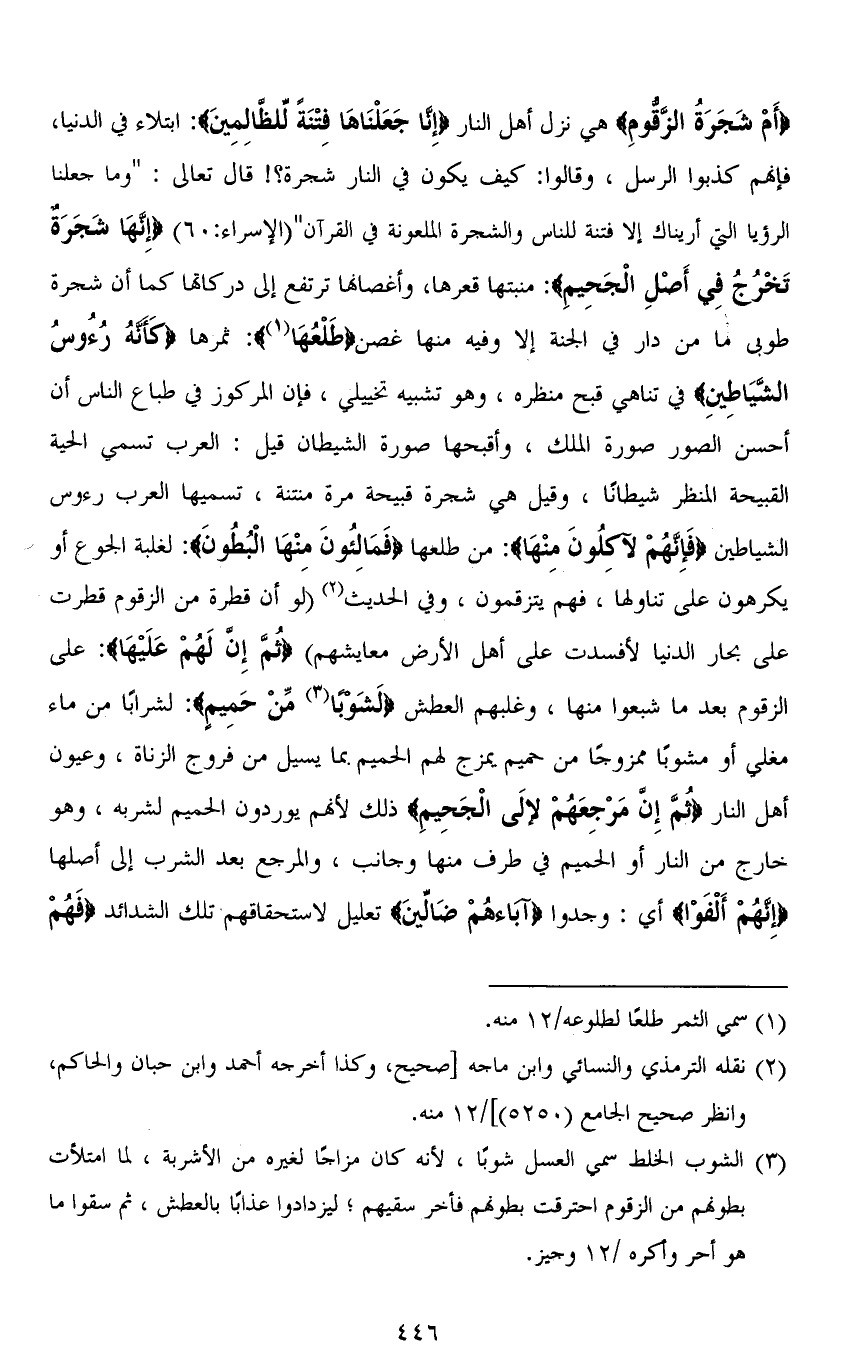 ﴿أَمْ شَجَرَةُ الزَّقُّومِ﴾ هي نزل أهل النار ﴿إِنَّا جَعَلْنَاهَا فِتْنَةً لِّلظَّالِمِينَ﴾: ابتلاء في الدنيا،
فإنهم كذبوا الرسل ، وقالوا: كيف يكون في النار شجرة؟! قال تعالى : "وما جعلنا
الرؤيا التي أريناك إلا فتنة للناس والشجرة الملعونة في القرآن"(الإسراء:٦٠) ﴿إِنَّهَا شَجَرَةٌ
تَخْرُجُ فِي أَصْلِ الْجَحِيمِ﴾: منبتها قعرها، وأغصانها ترتفع إلى دركاتها كما أن شجرة
طوبى ما من دار في الجنة إلا وفيه منها غصن﴿طَلْعُهَا(١)﴾: ثمرها ﴿كَأَنَّهُ رُءُوسُ
الشَّيَاطِينِ﴾ في تناهي قبح منظره ، وهو تشبيه تخييلي ، فإن المركوز في طباع الناس أن
أحسن الصور صورة الملك ، وأقبحها صورة الشيطان قيل : العرب تسمي الحية
القبيحة المنظر شيطانًا ، وقيل هي شجرة قبيحة مرة منتنة ، تسميها العرب رءوس
الشياطين ﴿فَإِنَّهُمْ لآكِلُونَ مِنْهَا﴾: من طلعها ﴿فَمَالِئُونَ مِنْهَا الْبُطُونَ﴾: لغلبة الجوع أو
يكرهون على تناولها ، فهم يتزقمون ، وفي الحديث(٢) (لو أن قطرة من الزقوم قطرت
على بحار الدنيا لأفسدت على أهل الأرض معايشهم) ﴿ثُمَّ إِنَّ لَهُمْ عَلَيْهَا﴾: على
الزقوم بعد ما شبعوا منها ، وغلبهم العطش ﴿لَشَوْبًا(٣) مِّنْ حَمِيمٍ﴾: لشرابًا من ماء
مغلي أو مشوبًا ممزوجًا من حميم يمزج لهم الحميم بما يسيل من فروج الزناة ، وعيون
أهل النار ﴿ثُمَّ إِنَّ مَرْجِعَهُمْ لإِلَى الْجَحِيمِ﴾ ذلك لأنهم يوردون الحميم لشربه ، وهو
خارج من النار أو الحميم في طرف منها وجانب ، والمرجع بعد الشرب إلى أصلها
﴿إِنَّهُمْ أَلْفَوْا﴾ أي : وجدوا ﴿آبَاءهُمْ ضَالِّينَ﴾ تعليل لاستحقاقهم تلك الشدائد ﴿فَهُمْ
(١) سمي الثمر طلعًا لطلوعه/١٢ منه.
(٢) نقله الترمذي والنسائي وابن ماجه [صحيح، وكذا أخرجه أحمد وابن حبان والحاكم،
وانظر صحيح الجامع (٥٢٥٠)]/١٢ منه.
(٣) الشوب الخلط سمي العسل شوبًا ، لأنه كان مزاجًا لغيره من الأشربة ، لما امتلأت
بطونهم من الزقوم احترقت بطونهم فأخر سقيهم ؛ ليزدادوا عذابًا بالعطش ، ثم سقوا ما
هو أحر وأكره /١٢ وجيز.
٤٤٦